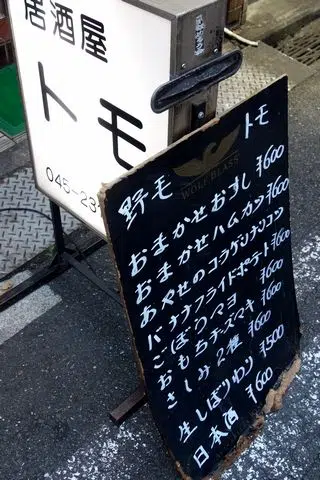 居酒屋
トモ
045-23
トモ
WOLF BLASS
野毛
おまかせおすし ¥600
おまかせハムカツ ¥600
あやせのコラゲンナンコツ
バナナフライドポテト ¥600
ごぼりマヨ ¥600
おもちチーズマキ ¥600
さしみ2種 ¥600
生しぼりわり ¥500
日本酒 ¥600